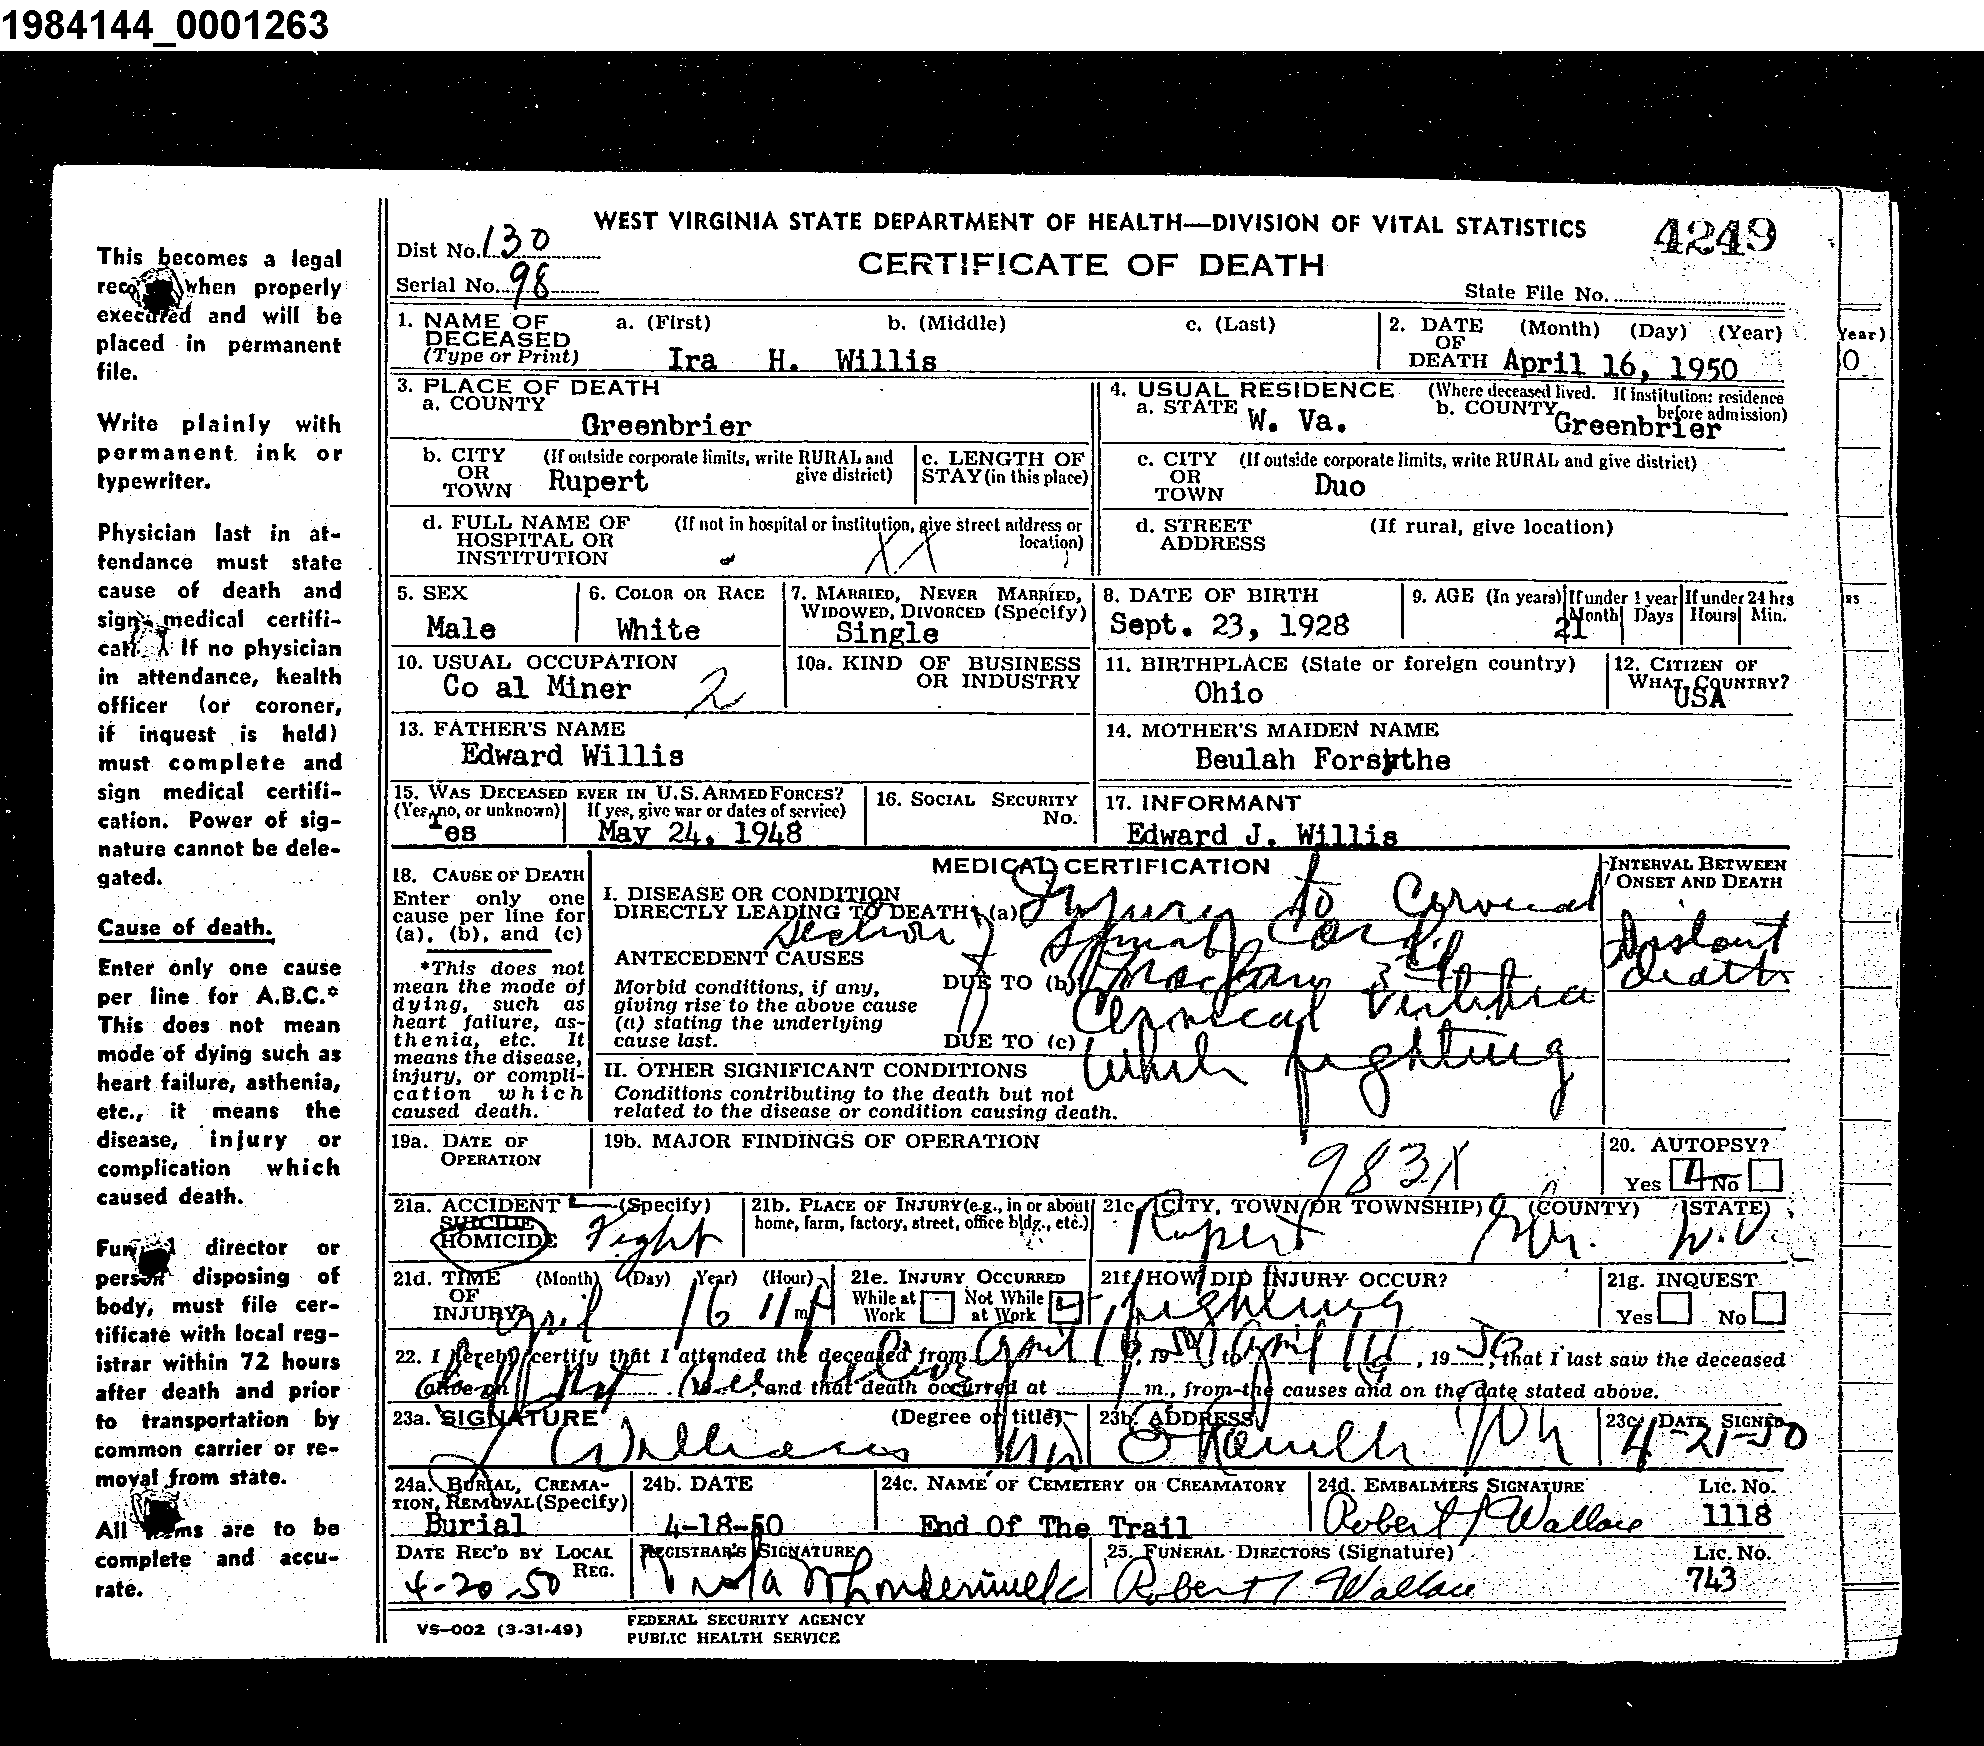 1984144_0001263
WEST VIRGINIA STATE DEPARTMENT OF HEALTH—DIVISION OF VITAL STATISTICS
4249
Dist No. 130
CERTIFICATE OF DEATH
Serial No. 98
State File No.
This becomes a legal
when properly
executed and will be
placed in permanent
file.
Write plainly with
permanent ink or
typewriter.
Physician last in at-
tendance must state
cause of death and
sign medical certifi-
If no physician
in attendance, health
officer (or coroner,
if inquest is held)
must complete and
sign medical certifi-
cation. Power of sig-
nature cannot be dele-
gated.
Cause of death.
Enter only one cause
per line for A.B.C.*
This does not mean
mode of dying such as
heart failure, asthenia,
etc., it means the
disease, injury or
complication which
caused death.
director or
person disposing of
body, must file cer-
tificate with local reg-
istrar within 72 hours
after death and prior
to transportation by
common carrier or re-
moval from state.
All are to be
complete and accu-
rate.
1. NAME OF DECEASED (Type or Print)
a. (First) b. (Middle) c. (Last)
Ira H. Willis
2. DATE OF DEATH (Month) (Day) (Year)
April 16, 1950
Year)
0
3. PLACE OF DEATH
a. COUNTY
Greenbrier
4. USUAL RESIDENCE (Where deceased lived. If institution: residence before admission)
a. STATE W. Va. b. COUNTY Greenbrier
b. CITY OR TOWN (If outside corporate limits, write RURAL and give district)
Rupert
c. LENGTH OF STAY (in this place)
c. CITY OR TOWN (If outside corporate limits, write RURAL and give district)
Duo
d. FULL NAME OF HOSPITAL OR INSTITUTION (If not in hospital or institution, give street address or location)
XX
d. STREET ADDRESS (If rural, give location)
5. SEX
Male
6. COLOR OR RACE
White
7. MARRIED, NEVER MARRIED, WIDOWED, DIVORCED (Specify)
Single
8. DATE OF BIRTH
Sept. 23, 1928
9. AGE (In years) If under 1 year If under 24 hrs
Month Days Hours Min.
21
10. USUAL OCCUPATION
Co al Miner 2
10a. KIND OF BUSINESS OR INDUSTRY
11. BIRTHPLACE (State or foreign country)
Ohio
12. CITIZEN OF WHAT COUNTRY?
USA
13. FATHER'S NAME
Edward Willis
14. MOTHER'S MAIDEN NAME
Beulah Forsythe
15. WAS DECEASED EVER IN U.S. ARMED FORCES?
(Yes, no, or unknown) If yes, give war or dates of service)
Yes May 24, 1948
16. SOCIAL SECURITY No.
17. INFORMANT
Edward J. Willis
18. CAUSE OF DEATH
Enter only one
cause per line for
(a), (b), and (c)
*This does not
mean the mode of
dying, such as
heart failure, as-
thenia, etc. It
means the disease,
injury, or compli-
cation which
caused death.
MEDICAL CERTIFICATION
INTERVAL BETWEEN ONSET AND DEATH
I. DISEASE OR CONDITION
DIRECTLY LEADING TO DEATH* (a) Injury to Cervical
Section Spinal Cord
ANTECEDENT CAUSES
Morbid conditions, if any,
giving rise to the above cause
(a) stating the underlying
cause last.
DUE TO (b) Fracture 3rd
Cervical Vertebra
DUE TO (c)
While fighting
death
II. OTHER SIGNIFICANT CONDITIONS
Conditions contributing to the death but not
related to the disease or condition causing death.
19a. DATE OF OPERATION
19b. MAJOR FINDINGS OF OPERATION
983X
20. AUTOPSY?
Yes No
21a. ACCIDENT (Specify)
SUICIDE
HOMICIDE Fight
21b. PLACE OF INJURY (e.g., in or about home, farm, factory, street, office bldg., etc.)
21c. (CITY, TOWN OR TOWNSHIP) (COUNTY) (STATE)
Rupert Gr. W.V.
21d. TIME OF INJURY (Month) (Day) (Year) (Hour)
April 16 11 m
21e. INJURY OCCURRED
While at Work Not While at Work
21f. HOW DID INJURY OCCUR?
fighting
21g. INQUEST
Yes No
22. I hereby certify that I attended the deceased from April 16, 1950, to April 16, 1950, that I last saw the deceased
alive on did not see alive, 19, and that death occurred at m., from the causes and on the date stated above.
23a. SIGNATURE (Degree or title)
Williams MD
23b. ADDRESS
23c. DATE SIGNED
4-21-50
24a. BURIAL, CREMA-
TION, REMOVAL (Specify)
Burial
24b. DATE
4-18-50
24c. NAME OF CEMETERY OR CREAMATORY
End Of The Trail
24d. EMBALMERS SIGNATURE LIC. NO.
Robert J Wallace 1118
DATE REC'D BY LOCAL REG.
4-20-50
REGISTRAR'S SIGNATURE
25. FUNERAL DIRECTORS (Signature) LIC. NO.
Robert J Wallace 743
VS-002 (3-31-49)
FEDERAL SECURITY AGENCY
PUBLIC HEALTH SERVICE